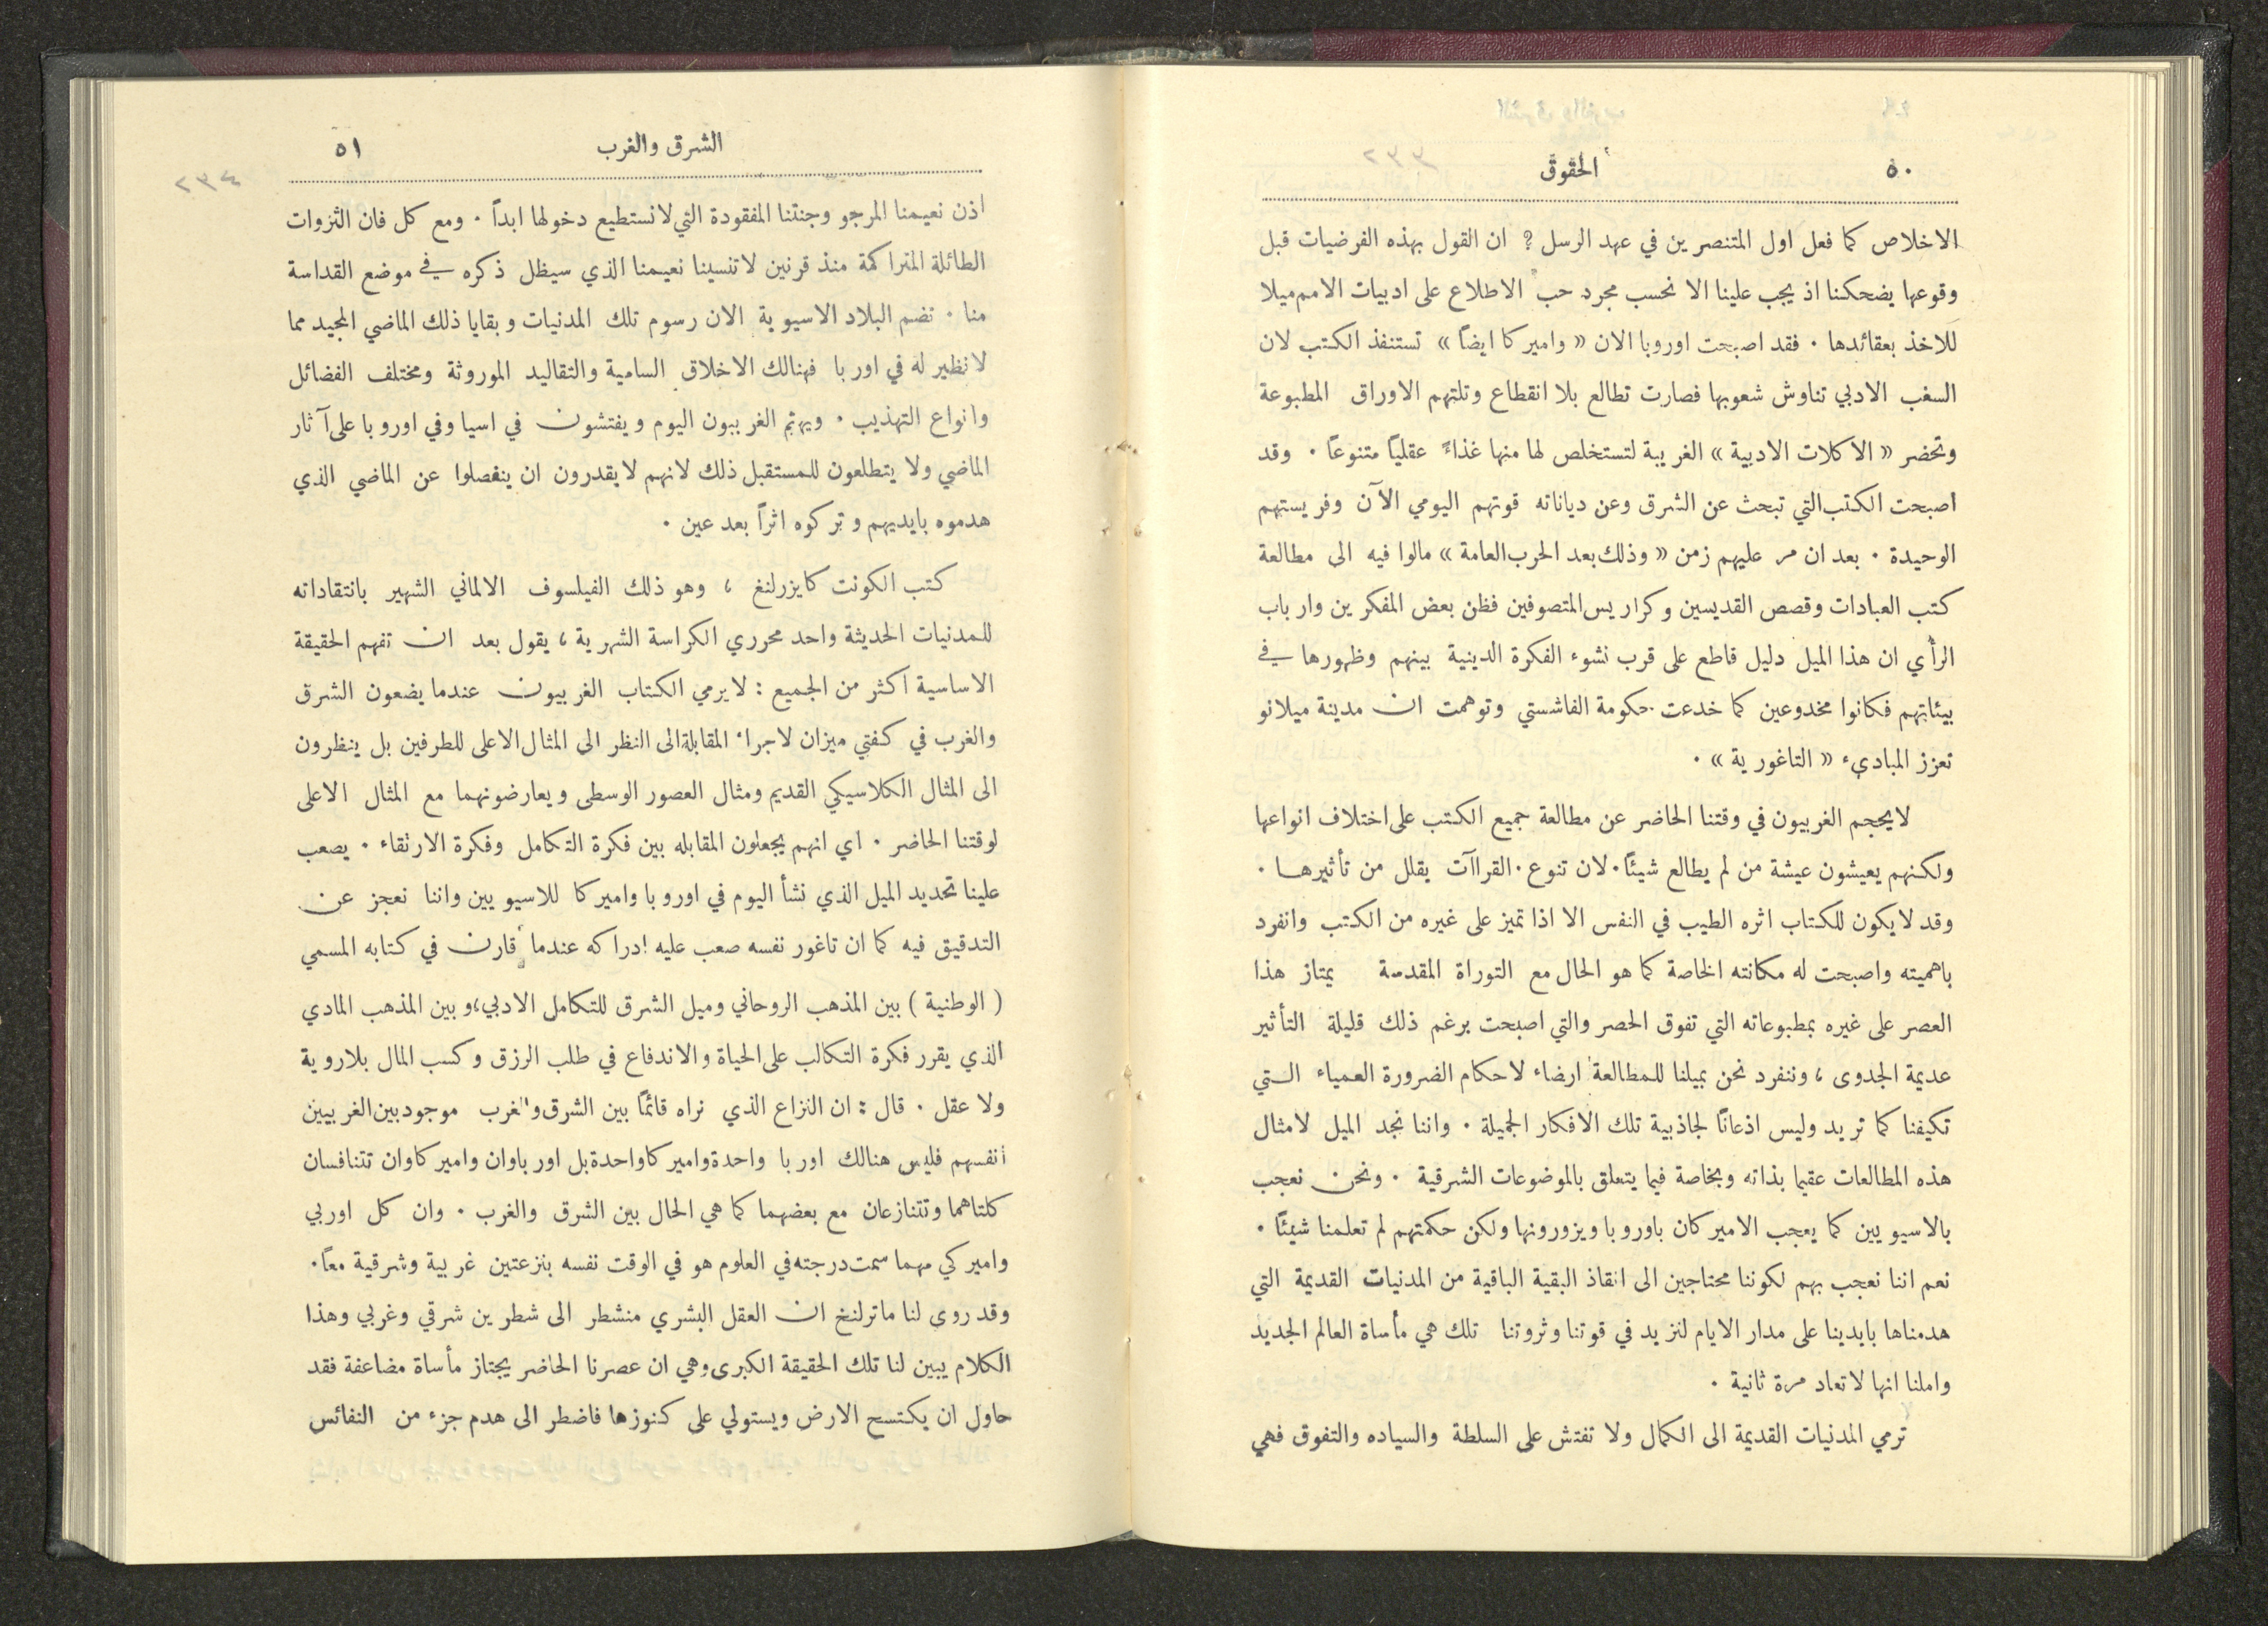 ٥٠
الحقوق
الاخلاص كما فعل اول المتنصرين في عهد الرسل ? ان القول بهذه الفرضيات قبل
وقوعها يضحكنا اذ يجب علينا الا نحسب مجرد حب الاطلاع على ادبيات الامم ميلا
للاخذ بعقائدها . فقد اصبحت اوروبا الان « واميركا ايضاً » تستنفذ الكتب لان
السغب الادبي تناوش شعوبها فصارت تطالع بلا انقطاع وتلتهم الاوراق المطبوعة
وتحضر « الاكلات الادبية » الغريبة لتستخلص لها منها غذاءً عقلياً متنوعاً . وقد
اصبحت الكتب التي تبحث عن الشرق وعن دياناته قوتهم اليومي الآن وفريستهم
الوحيدة . بعد ان مر عليهم زمن « وذلك بعد الحرب العامة » مالوا فيه الى مطالعة
كتب العبادات وقصص القديسين وكراريس المتصوفين فظن بعض المفكرين وارباب
الرأي ان هذا الميل دليل قاطع على قرب نشوء الفكرة الدينية بينهم وظهورها في
بيئاتهم فكانوا مخدوعين كما خدعت حكومة الفاشستي وتوهمت ان مدينة ميلانو
تعزز المبادىء « التاغورية » .
لا يحجم الغربيون في وقتنا الحاضر عن مطالعة جميع الكتب على اختلاف انواعها
ولكنهم يعيشون عيشة من لم يطالع شيئاً . لان تنوع . القراآت يقلل من تأثيرها .
وقد لا يكون للكتاب اثره الطيب في النفس الا اذا تميز على غيره من الكتب وانفرد
باهميته واصبحت له مكانته الخاصة كما هو الحال مع التوراة المقدسة يمتاز هذا
العصر على غيره بمطبوعاته التي تفوق الحصر والتي اصبحت برغم ذلك قليلة التأثير
عديمة الجدوى ، وننفرد نحن بميلنا للمطالعة ارضاء لاحكام الضرورة العمياء التي
تكيفنا كما تريد وليس اذعاناً لجاذبية تلك الافكار الجميلة . واننا نجد الميل لامثال
هذه المطالعات عقيما بذاته وبخاصة فيما يتعلق بالموضوعات الشرقية . ونحن نعجب
بالاسيويين كما يعجب الاميركان باوروبا ويزورونها ولكن حكمتهم لم تعلمنا شيئاً .
نعم اننا نعجب بهم لكوننا محتاجين الى انقاذ البقية الباقية من المدنيات القديمة التي
هدمناها بايدينا على مدار الايام لنزيد في قوتنا وثروتنا تلك هي مأساة العالم الجديد
واملنا انها لا تعاد مرة ثانية .
ترمي المدنيات القديمة الى الكمال ولا تفتش على السلطة والسياده والتفوق فهي
الشرق والغرب
٥١
اذن نعيمنا المرجو وجنتنا المفقودة التي لا نستطيع دخولها ابداً . ومع كل فان الثروات
الطائلة المتراكمة منذ قرنين لا تنسينا نعيمنا الذي سيظل ذكره في موضع القداسة
منا . تضم البلاد الاسيوية الان رسوم تلك المدنيات وبقايا ذلك الماضي المجيد مما
لا نظير له في اوربا فهنالك الاخلاق السامية والتقاليد الموروثة ومختلف الفضائل
وانواع التهذيب . ويهتم الغربيون اليوم ويفتشون في اسيا وفي اوروبا على آثار
الماضي ولا يتطلعون للمستقبل ذلك لانهم لا يقدرون ان ينفصلوا عن الماضي الذي
هدموه بايديهم وتركوه اثراً بعد عين .
كتب الكونت كايزرلنغ ، وهو ذلك الفيلسوف الالماني الشهير بانتقاداته
للمدنيات الحديثة واحد محرري الكراسة الشهرية ، يقول بعد ان تفهم الحقيقة
الاساسية اكثر من الجميع : لا يرمي الكتاب الغربيون عندما يضعون الشرق
والغرب في كفتي ميزان لاجراء المقابلة الى النظر الى المثال الاعلى للطرفين بل ينظرون
الى المثال الكلاسيكي القديم ومثال العصور الوسطى ويعارضونهما مع المثال الاعلى
لوقتنا الحاضر . اي انهم يجعلون المقابله بين فكرة التكامل وفكرة الارتقاء . يصعب
علينا تحديد الميل الذي نشأ اليوم في اوروبا واميركا للاسيويين واننا نعجز عن
التدقيق فيه كما ان تاغور نفسه صعب عليه ادراكه عندما قارن في كتابه المسمي
( الوطنية ) بين المذهب الروحاني وميل الشرق للتكامل الادبي ، وبين المذهب المادي
الذي يقرر فكرة التكالب على الحياة والاندفاع في طلب الرزق وكسب المال بلا روية
ولا عقل . قال : ان النزاع الذي نراه قائماً بين الشرق والغرب موجود بين الغربيين
أنفسهم فليس هنالك اوربا واحدة واميركا واحدة بل اورباوان واميركاوان تتنافسان
كلتاهما وتتنازعان مع بعضهما كما هي الحال بين الشرق والغرب . وان كل اوربي
واميركي مهما سمت درجته في العلوم هو في الوقت نفسه بنزعتين غربية وشرقية معاً .
وقد روى لنا ماترلنخ ان العقل البشري منشطر الى شطرين شرقي وغربي وهذا
الكلام يبين لنا تلك الحقيقة الكبرى وهي ان عصرنا الحاضر يجتاز مأساة مضاعفة فقد
حاول ان يكتسح الارض ويستولي على كنوزها فاضطر الى هدم جزء من النفائس